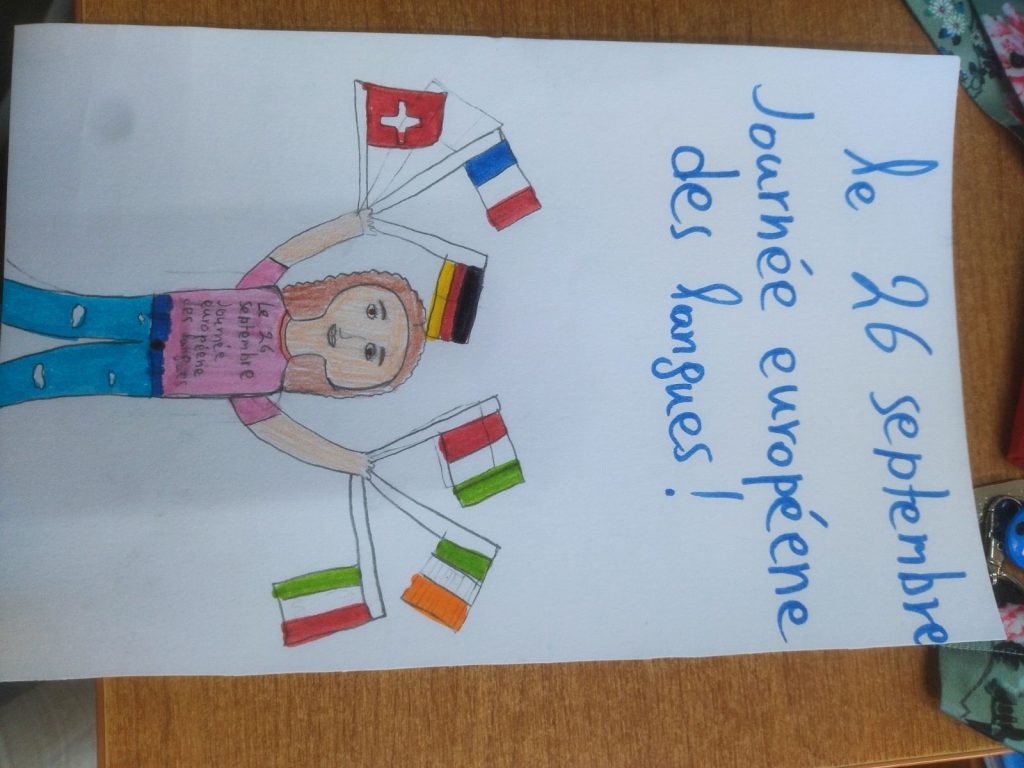 le 26 septembre
Journée européene
des langues!
Le 26
septembre
Journée
européene
des langues